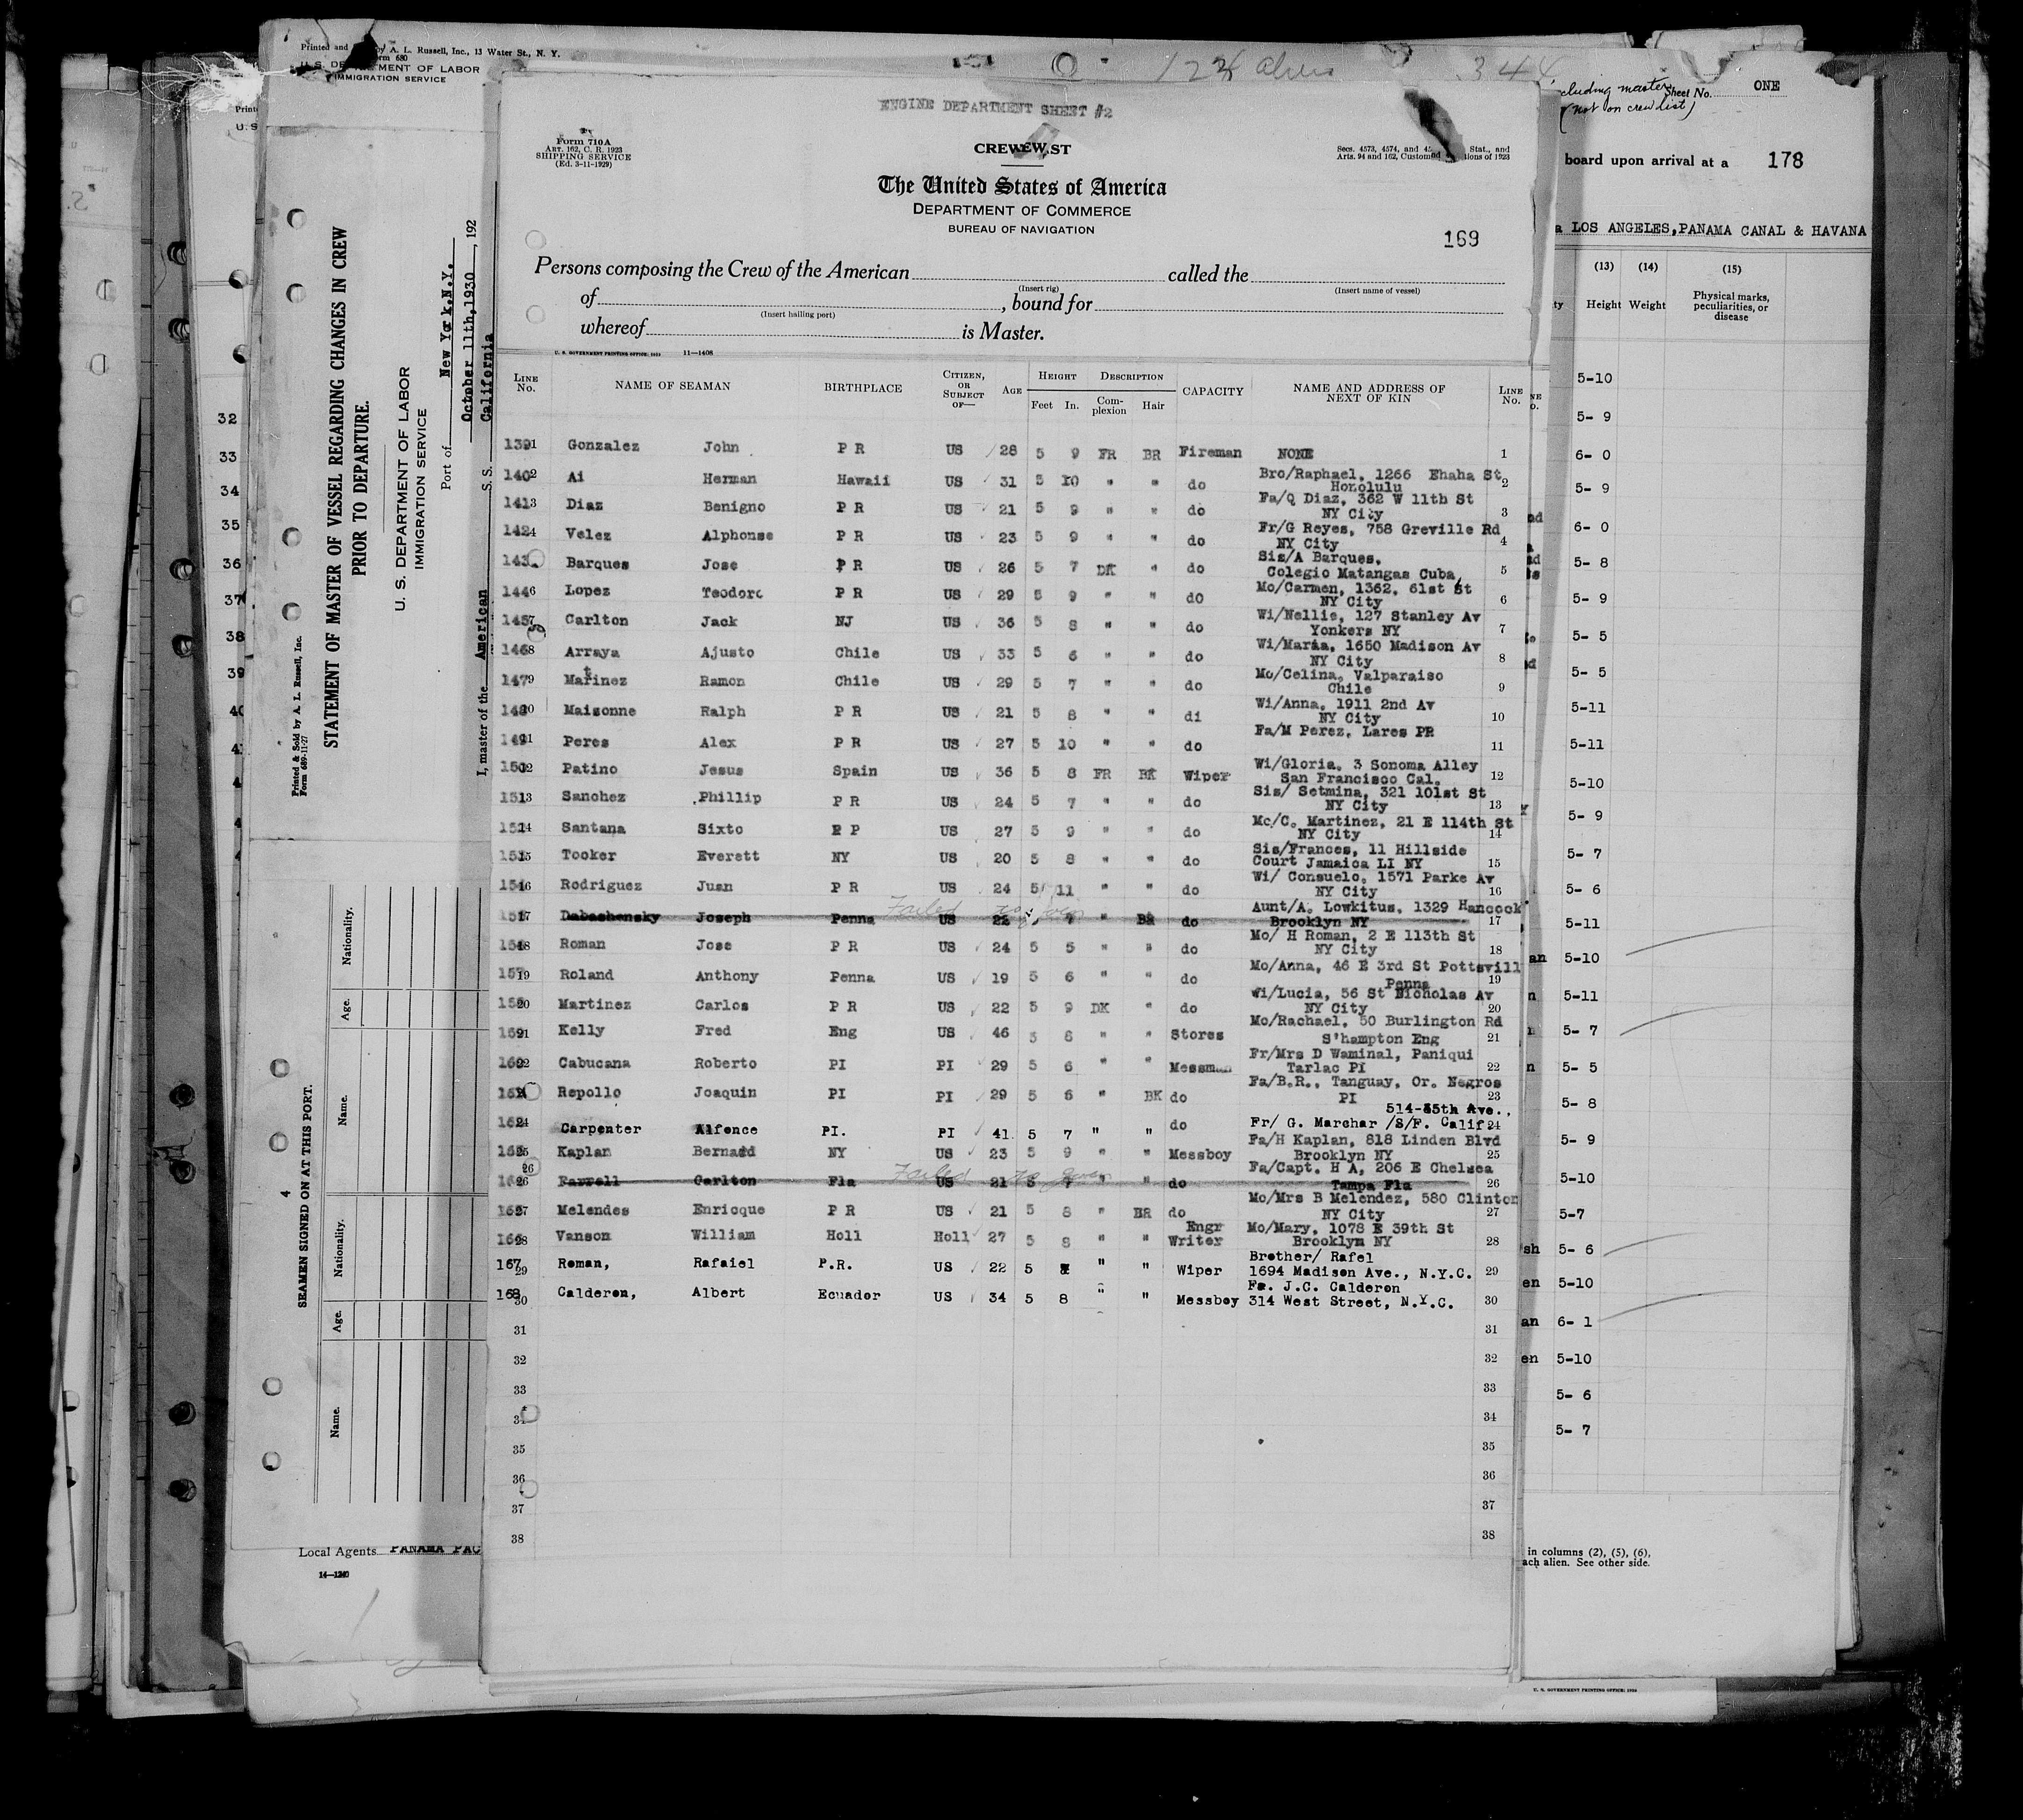 Printed and by A. L. Russell, Inc., 13 Water St., N. Y.
Form 680
U. S. DEPARTMENT OF LABOR
IMMIGRATION SERVICE
STATEMENT OF MASTER OF VESSEL REGARDING CHANGES IN CREW
PRIOR TO DEPARTURE.
U. S. DEPARTMENT OF LABOR
IMMIGRATION SERVICE
Port of New York.N.Y.
October 11th,1930, 192
I, master of the American S. S. California
Printed & Sold by A. L. Russell, Inc.
Form 689-11-27
32
33
34
35
36
37
38
39
SEAMEN SIGNED ON AT THIS PORT.
4
Name. Age. Nationality.
Name. Age. Nationality.
Local Agents PANAMA PAC
14—1240
122 aliens 344
ENGINE DEPARTMENT SHEET #2
Form 710A
ART. 162, C. R. 1923
SHIPPING SERVICE
(Ed. 3-11-1929)
Secs. 4573, 4574, and Stat., and
Arts. 94 and 162, Customs of 1923
The United States of America
DEPARTMENT OF COMMERCE
BUREAU OF NAVIGATION
169
Persons composing the Crew of the American called the
(Insert rig) (Insert name of vessel)
of , bound for
(Insert hailing port)
whereof is Master.
U. S. GOVERNMENT PRINTING OFFICE: 1929 11—1408
LINE No. NAME OF SEAMAN BIRTHPLACE CITIZEN, OR SUBJECT OF— AGE HEIGHT Feet In. DESCRIPTION Complexion Hair CAPACITY NAME AND ADDRESS OF NEXT OF KIN LINE No.
139 1 Gonzalez John P R US 28 5 9 FR BR Fireman NONE 1
140 2 Ai Herman Hawaii US 31 5 10 " " do Bro/Raphael, 1266 Ehaha St Honolulu 2
141 3 Diaz Benigno P R US 21 5 9 " " do Fa/Q Diaz, 362 W 11th St NY City 3
142 4 Velez Alphonse P R US 23 5 9 " " do Fr/G Reyes, 758 Greville Rd NY City 4
143 Barques Jose P R US 26 5 7 DK " do Sis/A Barques, Colegio Matangas Cuba, 5
144 6 Lopez Teodoro P R US 29 5 9 " " do Mo/Carmen, 1362, 61st St NY City 6
145 7 Carlton Jack NJ US 36 5 8 " " do Wi/Nellie, 127 Stanley Av Yonkers NY 7
146 8 Arraya Ajusto Chile US 33 5 6 " " do Wi/Maria, 1650 Madison Av NY City 8
147 9 Matinez Ramon Chile US 29 5 7 " " do Mo/Celina, Valparaiso Chile 9
148 10 Maisonne Ralph P R US 21 5 8 " " di Wi/Anna, 1911 2nd Av NY City 10
149 11 Peres Alex P R US 27 5 10 " " do Fa/M Perez, Lares PR 11
150 12 Patino Jesus Spain US 36 5 8 FR BK Wiper Wi/Gloria, 3 Sonoma Alley San Francisco Cal. 12
151 13 Sanchez Phillip P R US 24 5 7 " " do Sis/ Setmina, 321 101st St NY City 13
14 Santana Sixto R P US 27 5 9 " " do Mo/C. Martinez, 21 E 114th St NY City 14
15 Tooker Everett NY US 20 5 8 " " do Sis/Frances, 11 Hillside Court Jamaica LI NY 15
16 Rodriguez Juan P R US 24 5 11 " " do Wi/ Consuelo, 1571 Parke Av NY City 16
17 Dabashensky Joseph Penna Failed to join US 22 7 " BR do Aunt/A. Lowkitus, 1329 Hancock Brooklyn NY 17
18 Roman Jose P R US 24 5 5 " " do Mo/ H Roman, 2 E 113th St NY City 18
157 19 Roland Anthony Penna US 19 5 6 " " do Mo/Anna, 46 E 3rd St Pottsvill Penna 19
158 20 Martinez Carlos P R US 22 5 9 DK " do Wi/Lucia, 56 St Nicholas Av NY City 20
159 21 Kelly Fred Eng US 46 5 8 " " Stores Mo/Rachael, 50 Burlington Rd S'hampton Eng 21
160 22 Cabucana Roberto PI PI 29 5 6 " " Messman Fr/Mrs D Waminal, Paniqui Tarlac PI 22
161 Repollo Joaquin PI PI 29 5 6 " BK do Fa/B.R., Tanguay, Or. Negros PI 23
162 24 Carpenter Alfonce PI. PI 41 5 7 " " do 514-85th Ave., Fr/ G. Marchar /S/F. Calif. 24
163 25 Kaplan Bernard NY US 23 5 9 " " Messboy Fa/H Kaplan, 818 Linden Blvd Brooklyn NY 25
26 Farrell Carlton Fla Failed to join US 21 5 7 " " do Fa/Capt. H A, 206 E Chelsea Tampa Fla 26
165 27 Melendes Enricque P R US 21 5 8 " BR do Mo/Mrs B Melendez, 580 Clinton NY City 27
166 28 Vanson William Holl Holl 27 5 8 " " Engr Writer Mo/Mary, 1078 E 39th St Brooklyn NY 28
167 29 Roman, Rafaiel P.R. US 22 5 " " Wiper Brother/ Rafel 1694 Madison Ave., N.Y.C. 29
168 30 Calderon, Albert Ecuador US 34 5 8 " " Messboy Fa. J.C. Calderon 314 West Street, N.Y.C. 30
31 31
32 32
33 33
34 34
35 35
36 36
37 37
38 38
cluding master
(not on crew list)
Sheet No. ONE
board upon arrival at a 178
LOS ANGELES,PANAMA CANAL & HAVANA
(13) (14) (15)
Height Weight Physical marks, peculiarities, or disease
5-10
5- 9
6- 0
5- 9
6- 0
5- 8
5- 9
5- 5
5- 5
5-11
5-11
5-10
5- 9
5- 7
5- 6
5-11
an 5-10
n 5-11
5- 7
n 5- 5
5- 8
5- 9
5-10
5-7
sh 5- 6
en 5-10
an 6- 1
en 5-10
5- 6
5- 7
in columns (2), (5), (6),
ach alien. See other side.
U. S. GOVERNMENT PRINTING OFFICE: 1930